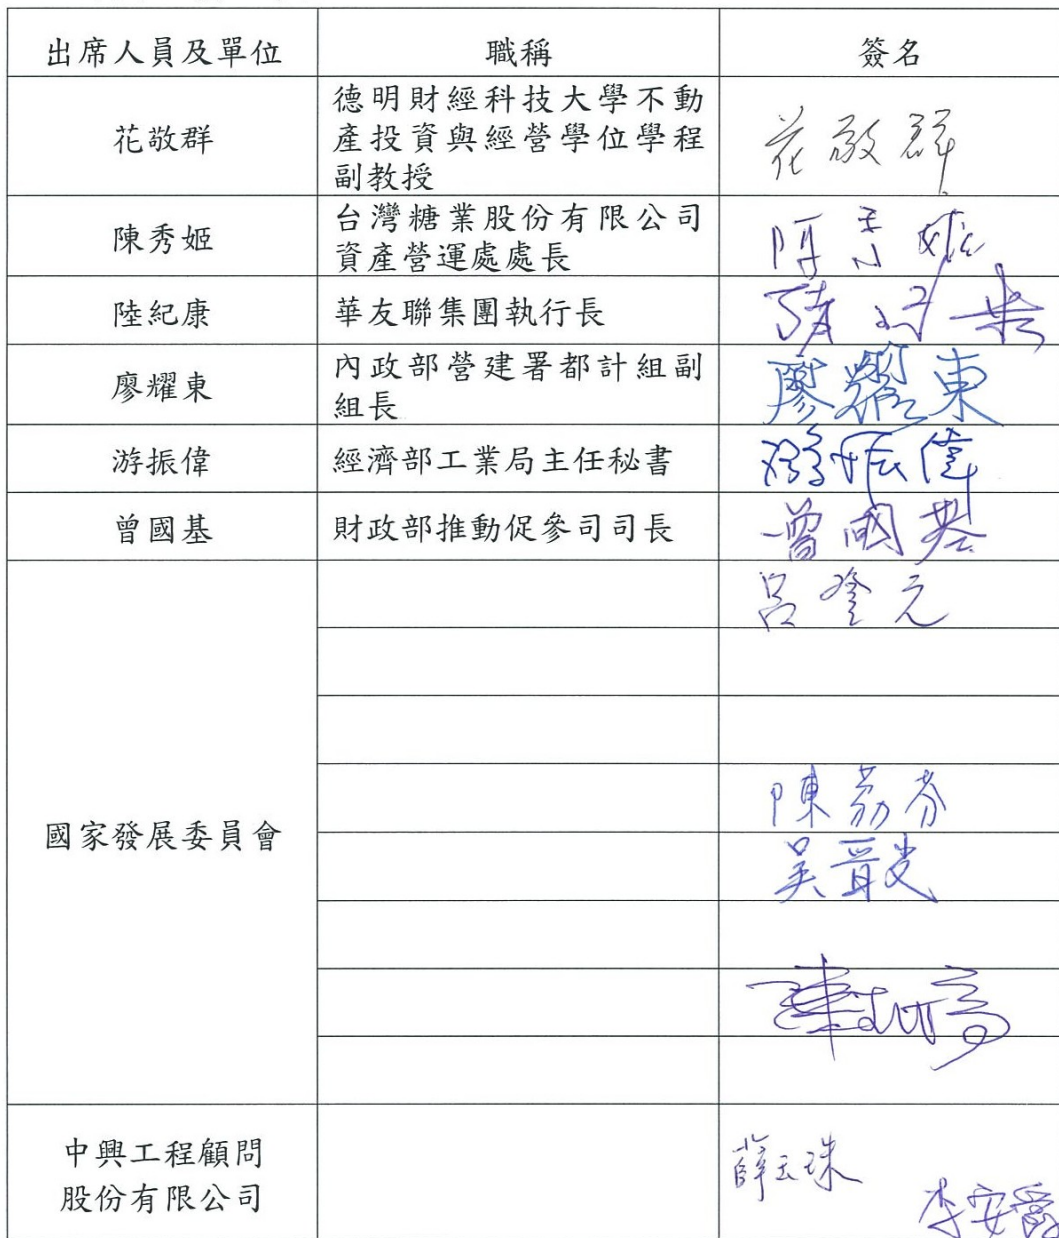 出席人員及單位
職稱
簽名
花敬群
德明財經科技大學不動
產投資與經營學位學程
副教授
花敬群
陳秀姬
台灣糖業股份有限公司
資產營運處處長
陳秀姬
陸紀康
華友聯集團執行長
廖耀東
內政部營建署都計組副
組長
廖耀東
游振偉
經濟部工業局主任秘書
游振偉
曾國基
財政部推動促參司司長
曾國基
國家發展委員會
呂登元
陳荔芬
中興工程顧問
股份有限公司
薛玉珠